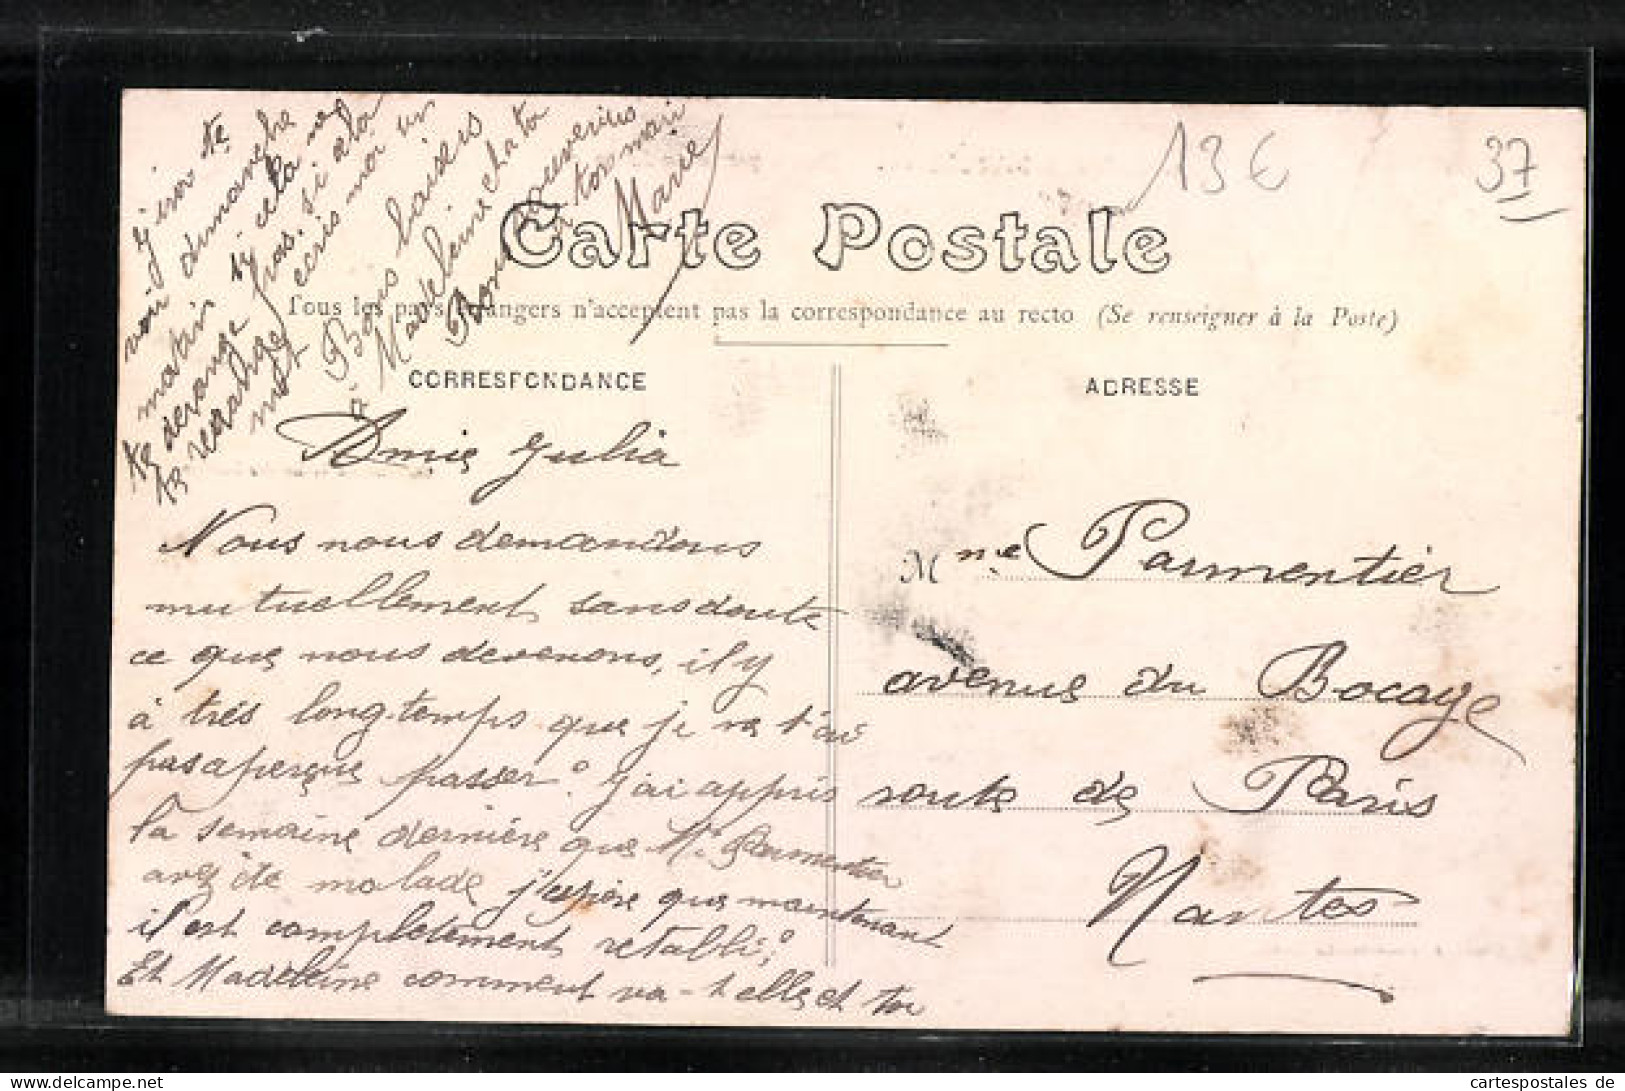 13€
37
Carte Postale
Tous les pays étrangers n'acceptent pas la correspondance au recto (Se renseigner à la Poste)
CORRESPONDANCE
ADRESSE
Amie Julia
Nous nous demandons
mutuellement sans doute
ce que nous devenons, il y
à très longtemps que je ne t'ai
pas aperçue passer. J'ai appris
la semaine dernière que Mr Parmentier
avez été malade j'espère que maintenant
il est complètement retabli;
Et Madeleine comment va-t elle, et toi
j'irai te
voir dimanche
matin si cela ne
te dérange pas. si cela
te dérange écris moi un
mot
Bons baisers
à Madeleine et à toi
Bons souvenirs
à ton mari
Marie
Mme Parmentier
avenue du Bocage
route de Paris
Nantes
www.cartespostales.de